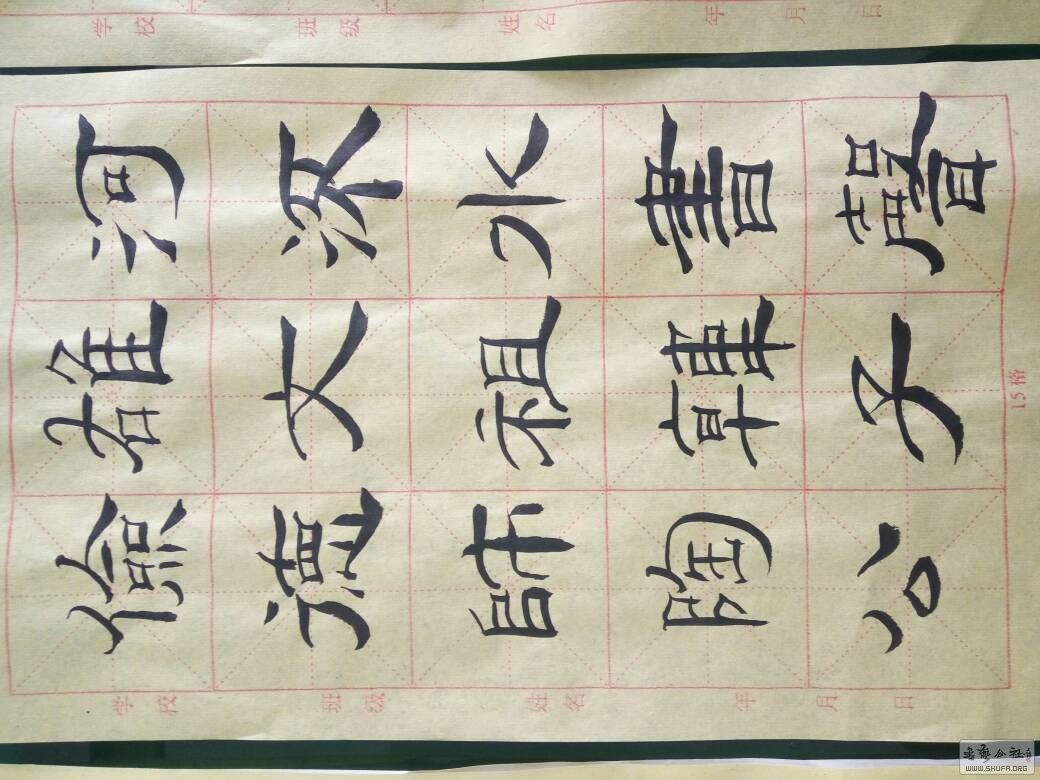 学校 班级 姓名 年 月 日
河深水書聲
雄文祖韓子
儉德師陶公
学校 班级 姓名 年 月 日
15格
书艺公社
WWW.SHUFA.ORG